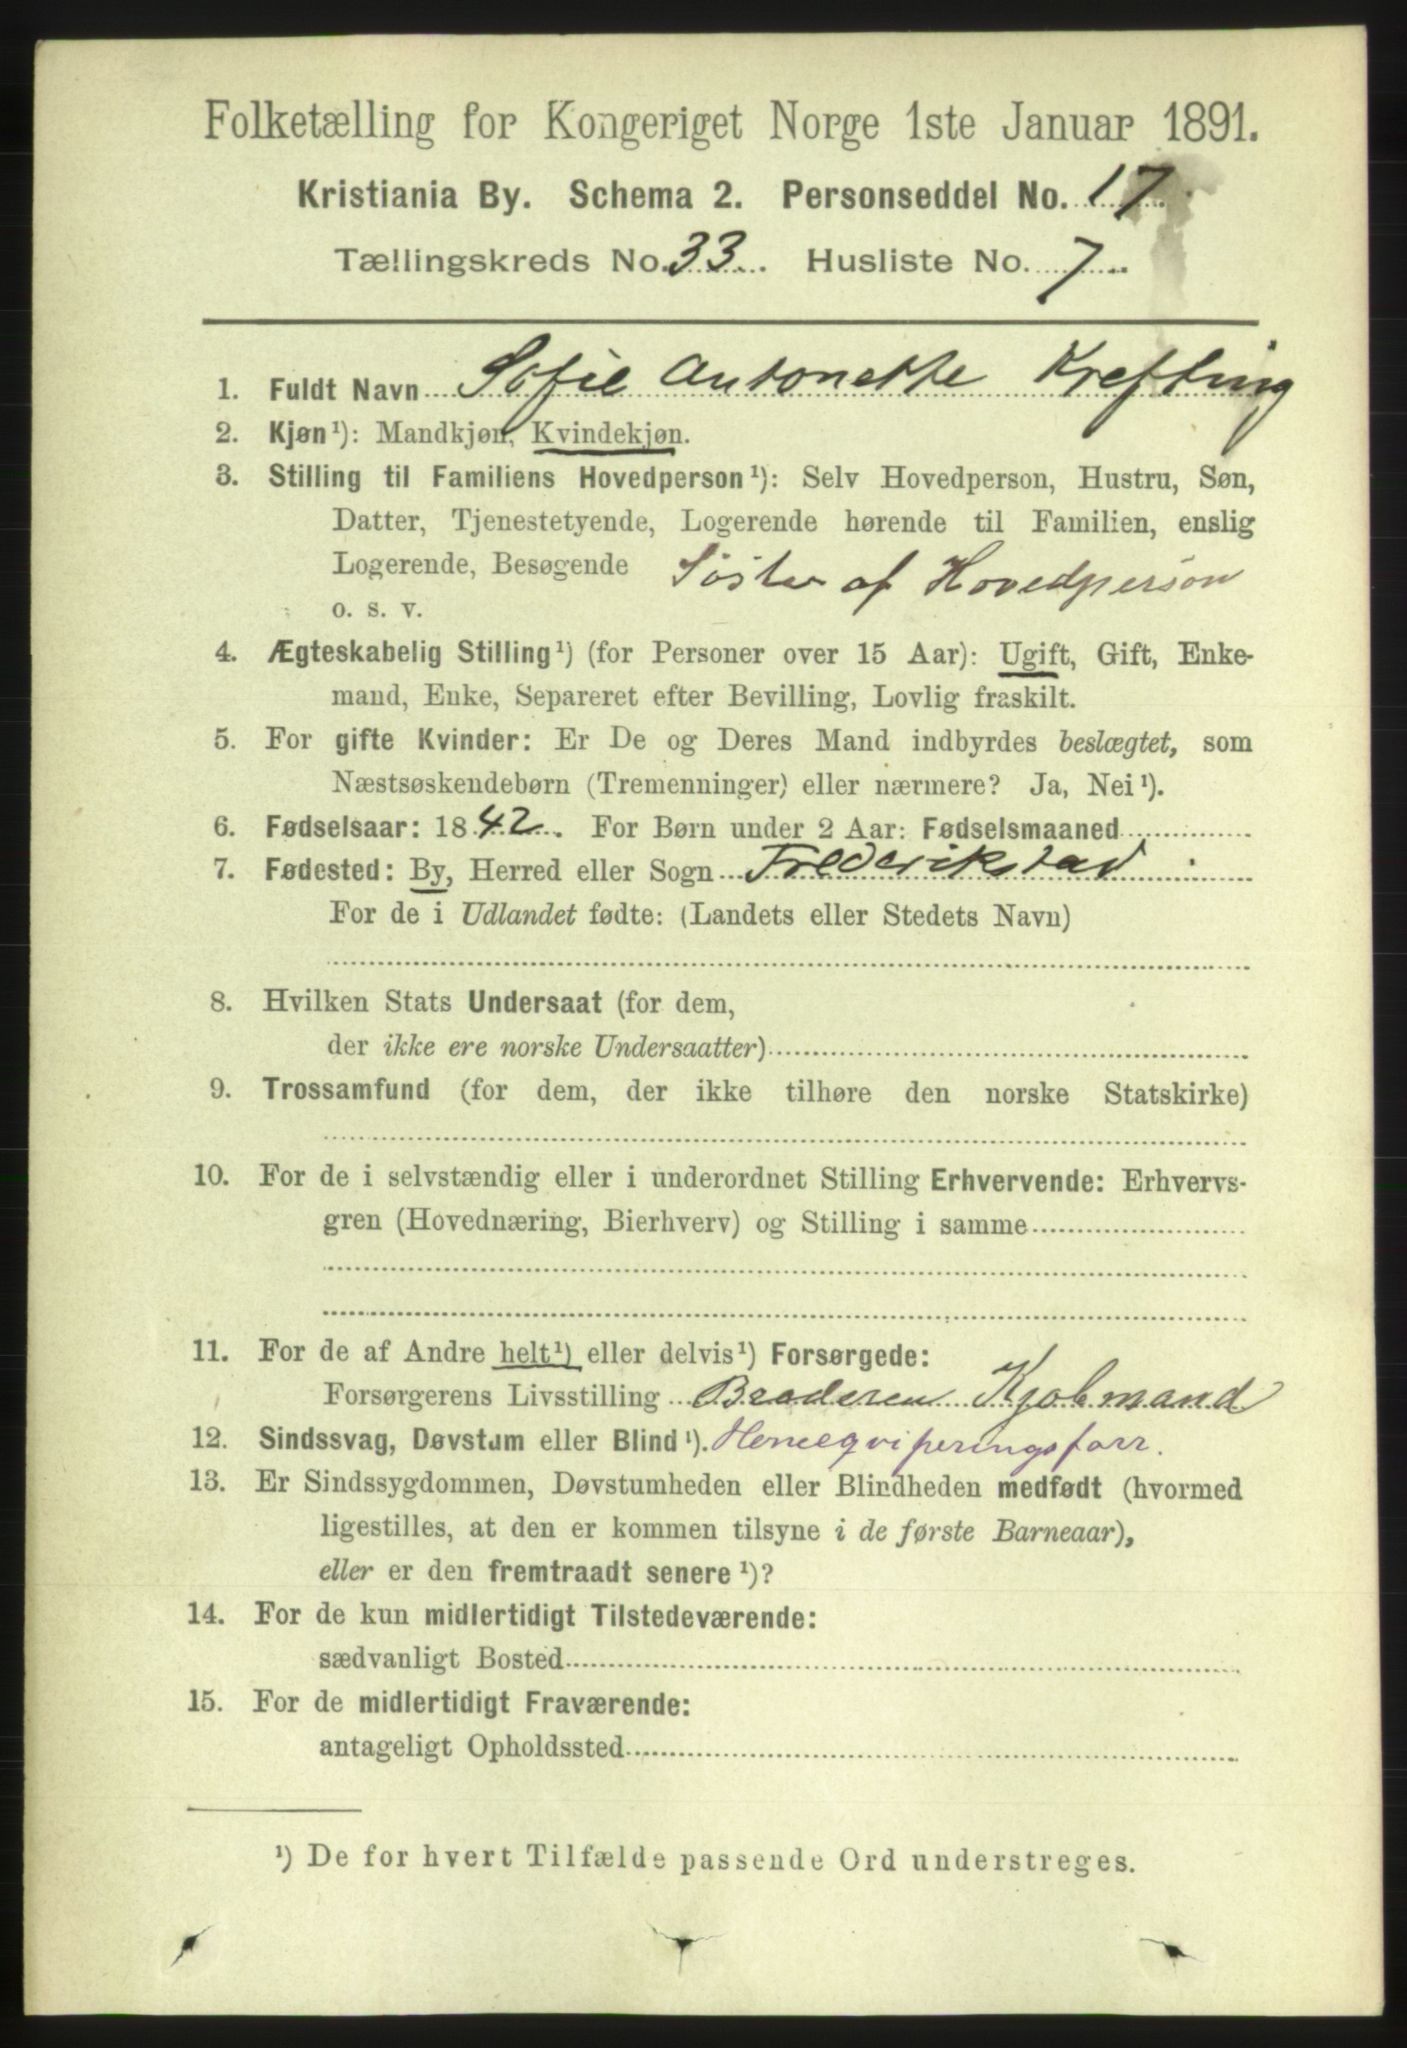 Folketælling for Kongeriget Norge 1ste Januar 1891.
Kristiania By. Schema 2. Personseddel No. 17.
Tællingskreds No. 33. Husliste No. 7
1. Fuldt Navn Sofie Antonette Krefting
2. Kjøn¹): Mandkjøn, Kvindekjøn.
3. Stilling til Familiens Hovedperson¹): Selv Hovedperson, Hustru, Søn,
Datter, Tjenestetyende, Logerende hørende til Familien, enslig
Logerende, Besøgende Söster af Hovedperson
o. s. v.
4. Ægteskabelig Stilling¹) (for Personer over 15 Aar): Ugift, Gift, Enke-
mand, Enke, Separeret efter Bevilling, Lovlig fraskilt.
5. For gifte Kvinder: Er De og Deres Mand indbyrdes beslægtet, som
Næstsøskendebørn (Tremenninger) eller nærmere? Ja, Nei¹).
6. Fødselsaar: 1842. For Børn under 2 Aar: Fødselsmaaned
7. Fødested: By, Herred eller Sogn Frederikstad
For de i Udlandet fødte: (Landets eller Stedets Navn)
8. Hvilken Stats Undersaat (for dem,
der ikke ere norske Undersaatter)
9. Trossamfund (for dem, der ikke tilhøre den norske Statskirke)
10. For de i selvstændig eller i underordnet Stilling Erhvervende: Erhvervs-
gren (Hovednæring, Bierhverv) og Stilling i samme
11. For de af Andre helt¹) eller delvis¹) Forsørgede:
Forsørgerens Livsstilling Broderen Kjøbmand
12. Sindssvag, Døvstum eller Blind¹). Herreeqviperingsforr.
13. Er Sindssygdommen, Døvstumheden eller Blindheden medfødt (hvormed
ligestilles, at den er kommen tilsyne i de første Barneaar),
eller er den fremtraadt senere¹)?
14. For de kun midlertidigt Tilstedeværende:
sædvanligt Bosted
15. For de midlertidigt Fraværende:
antageligt Opholdssted
¹) De for hvert Tilfælde passende Ord understreges.